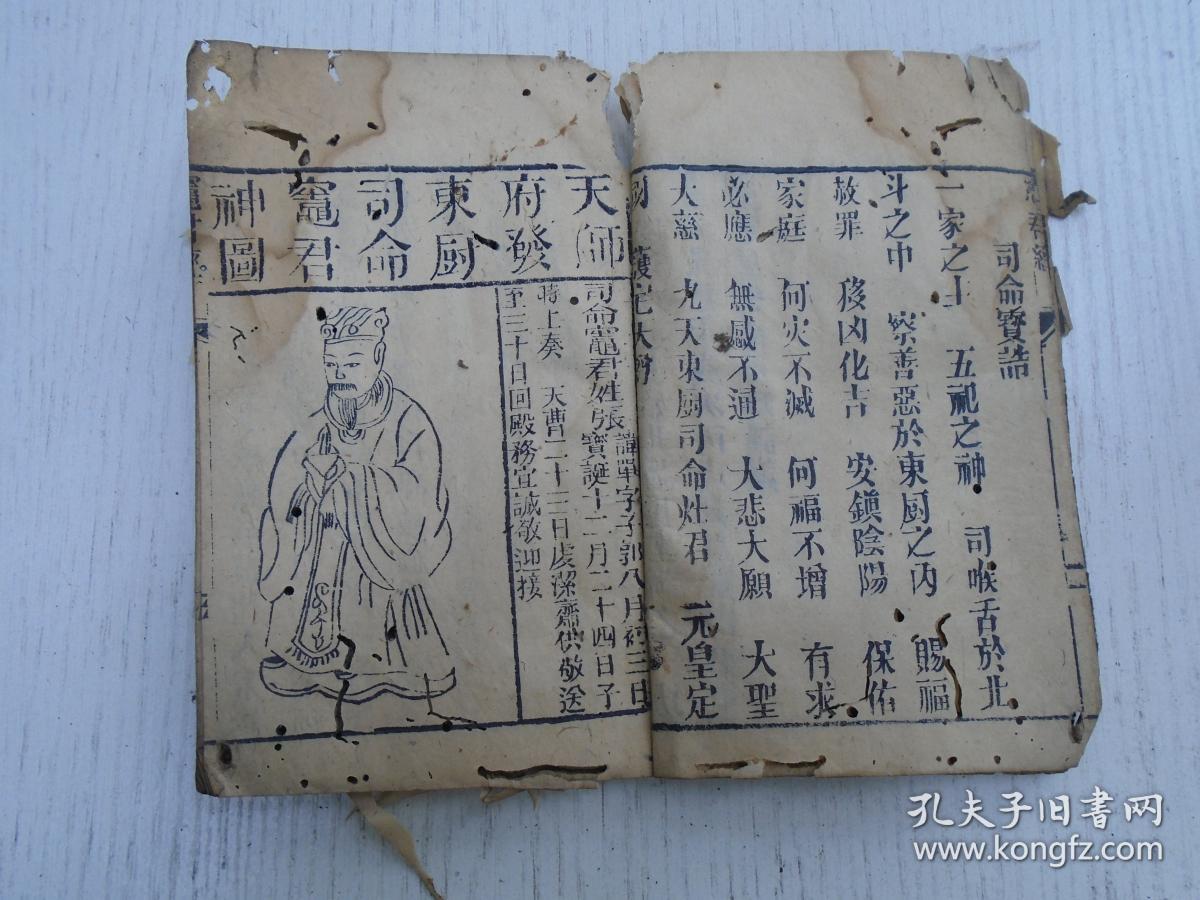 司命寳誥
一家之主　五祀之神　司喉舌於北
斗之中　察善惡於東厨之内　賜福
赦罪　移凶化吉　安鎮陰陽　保佑
家庭　何灾不滅　何福不增　有求
必應　無感不通　大悲大願　大聖
大慈　九天東厨司命灶君　元皇定
天師
府發
東厨
司命
竈君
神圖
司命竈君姓張
諱單字子郭八月初三日
寳誕十二月二十四日子
時上奏　天曹二十三日虔潔齋供敬送
至三十日回殿務宜誠敬迎接
孔夫子旧书网
www.kongfz.com